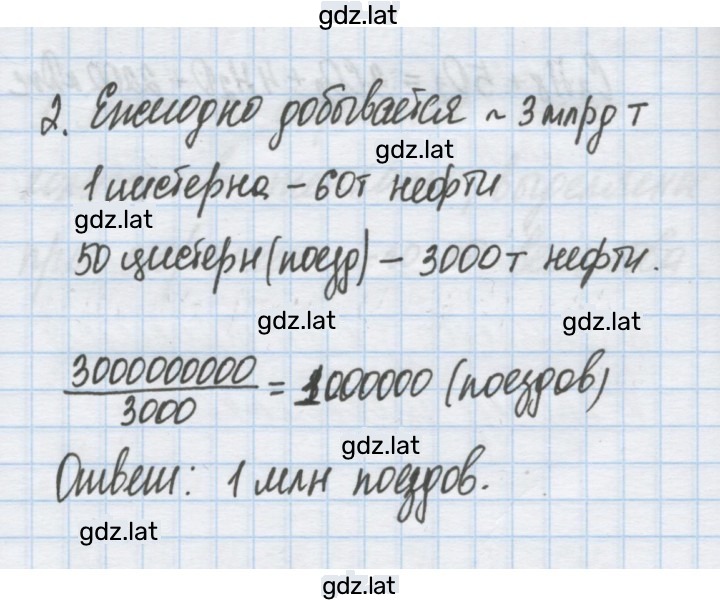 gdz.lat
2. Ежегодно добывается ~ 3 млрд т
gdz.lat
1 цистерна – 60т нефти
gdz.lat
50 цистерн (поезд) – 3000 т нефти.
gdz.lat gdz.lat
3000000000
3000
= 1000000 (поездов)
gdz.lat
Ответ: 1 млн поездов.
gdz.lat
gdz.lat